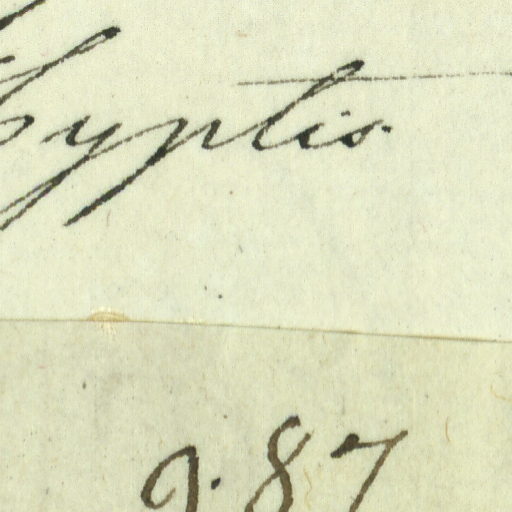 Hyptis.
87